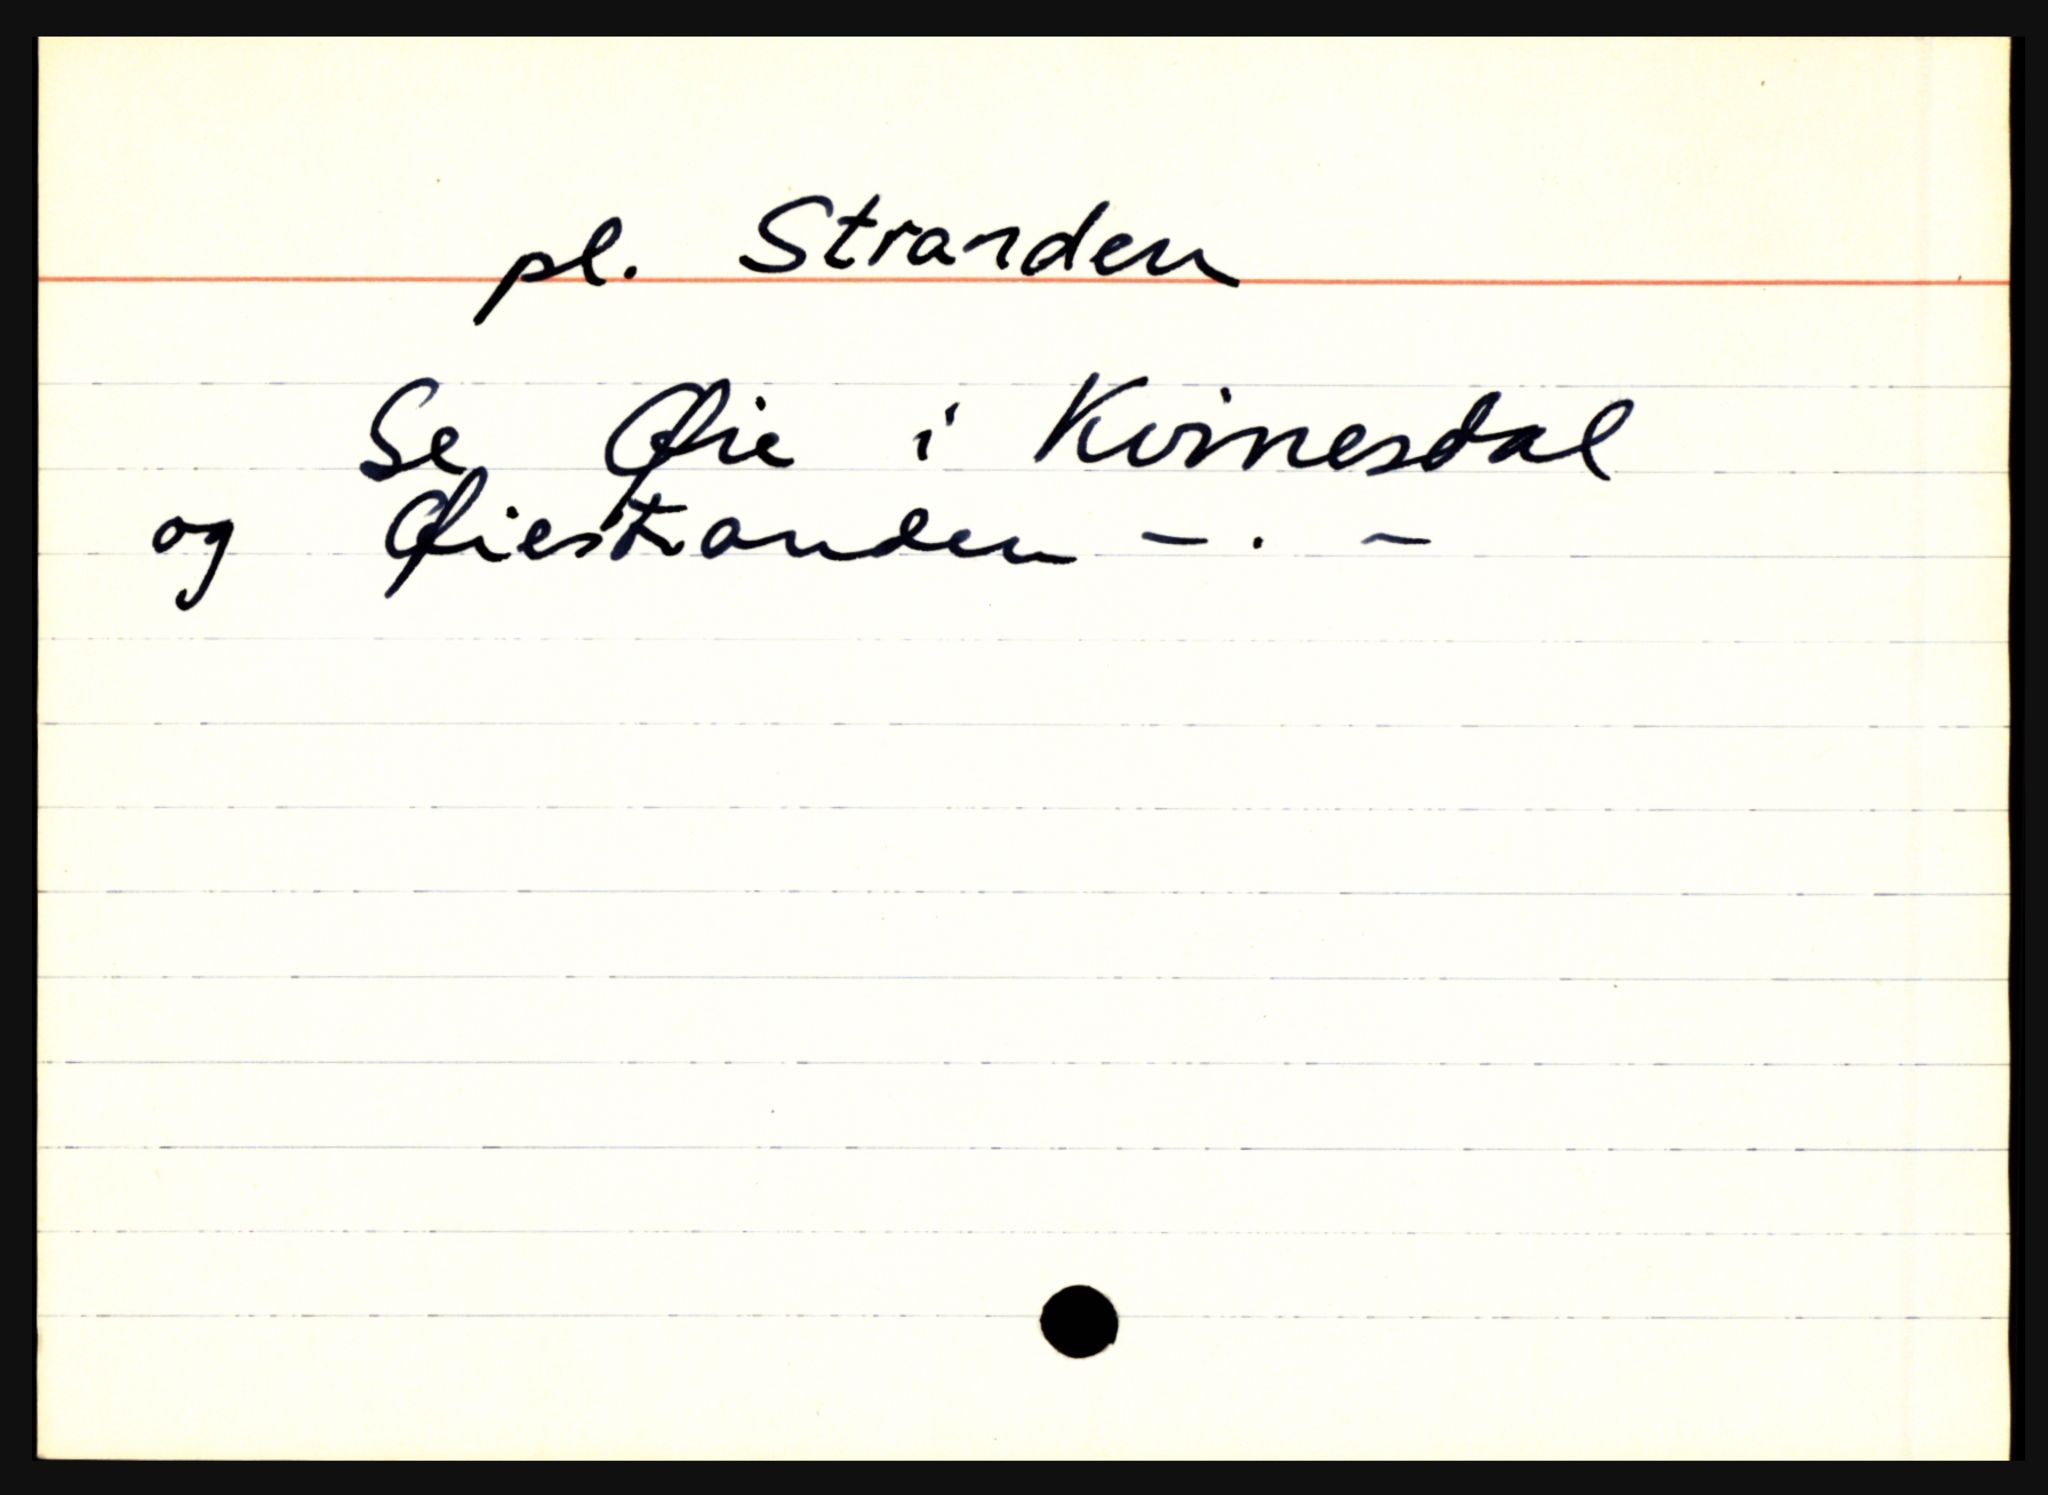 pl. Stranden
Se Øie i Kvinesdal
og Øiestranden - . -